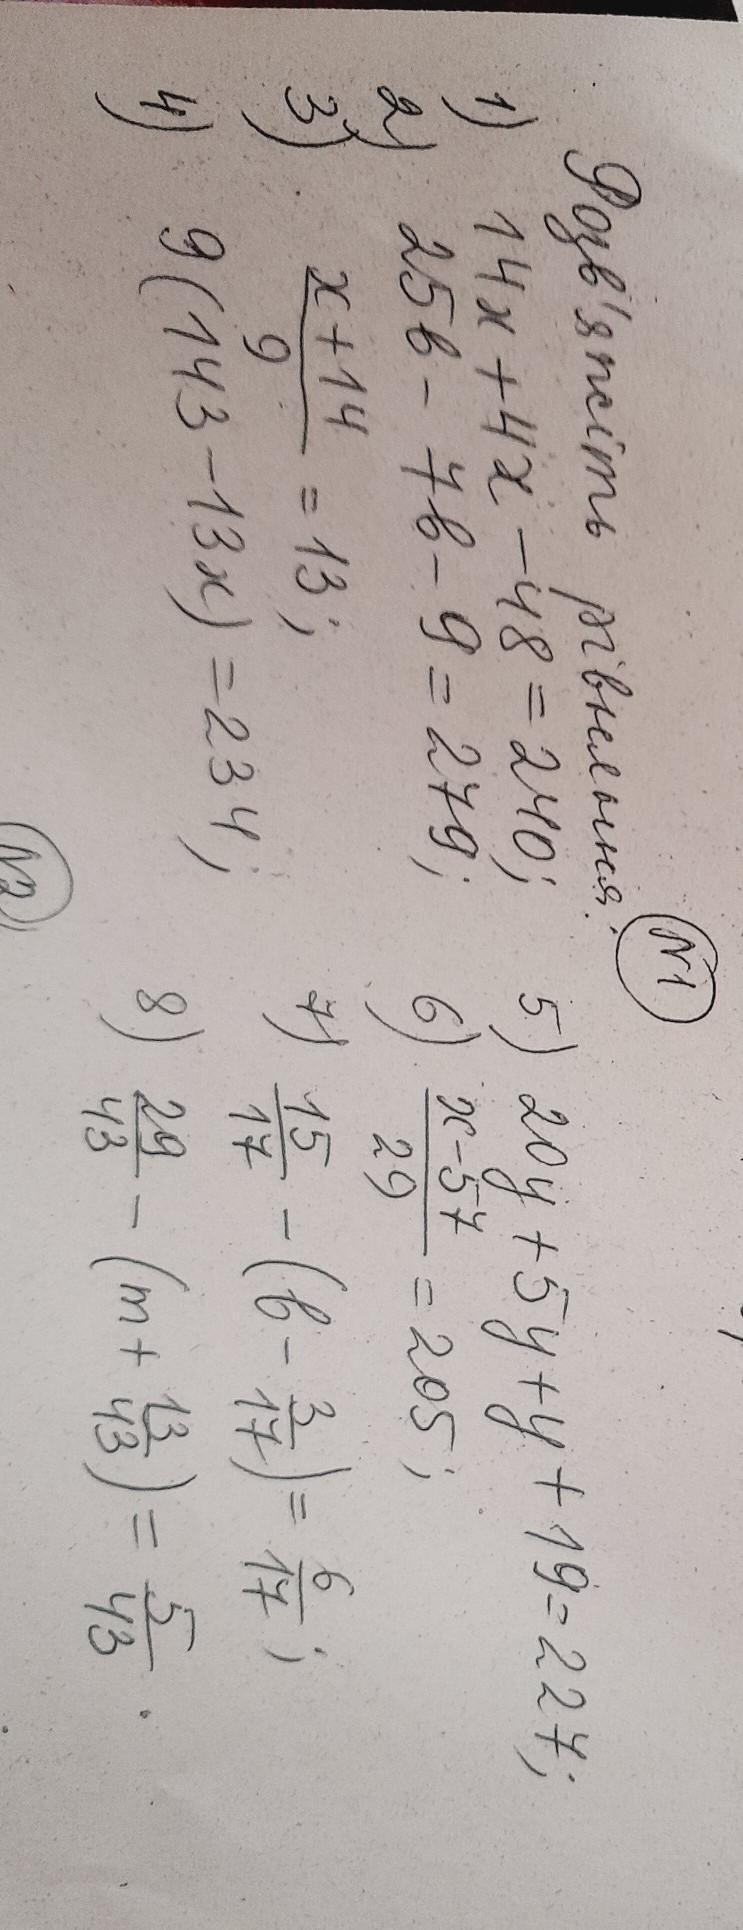 №1
Розв'яжіть рівняння:
1) 14x + 4x - 48 = 240;
2) 25b - 7b - 9 = 279;
3) \frac{x+14}{9} = 13;
4) 9(143 - 13x) = 234;
5) 20y + 5y + y + 19 = 227;
6) \frac{x-57}{29} = 205;
7) \frac{15}{17} - (b - \frac{3}{17}) = \frac{6}{17};
8) \frac{29}{43} - (m + \frac{13}{43}) = \frac{5}{43}.
№2